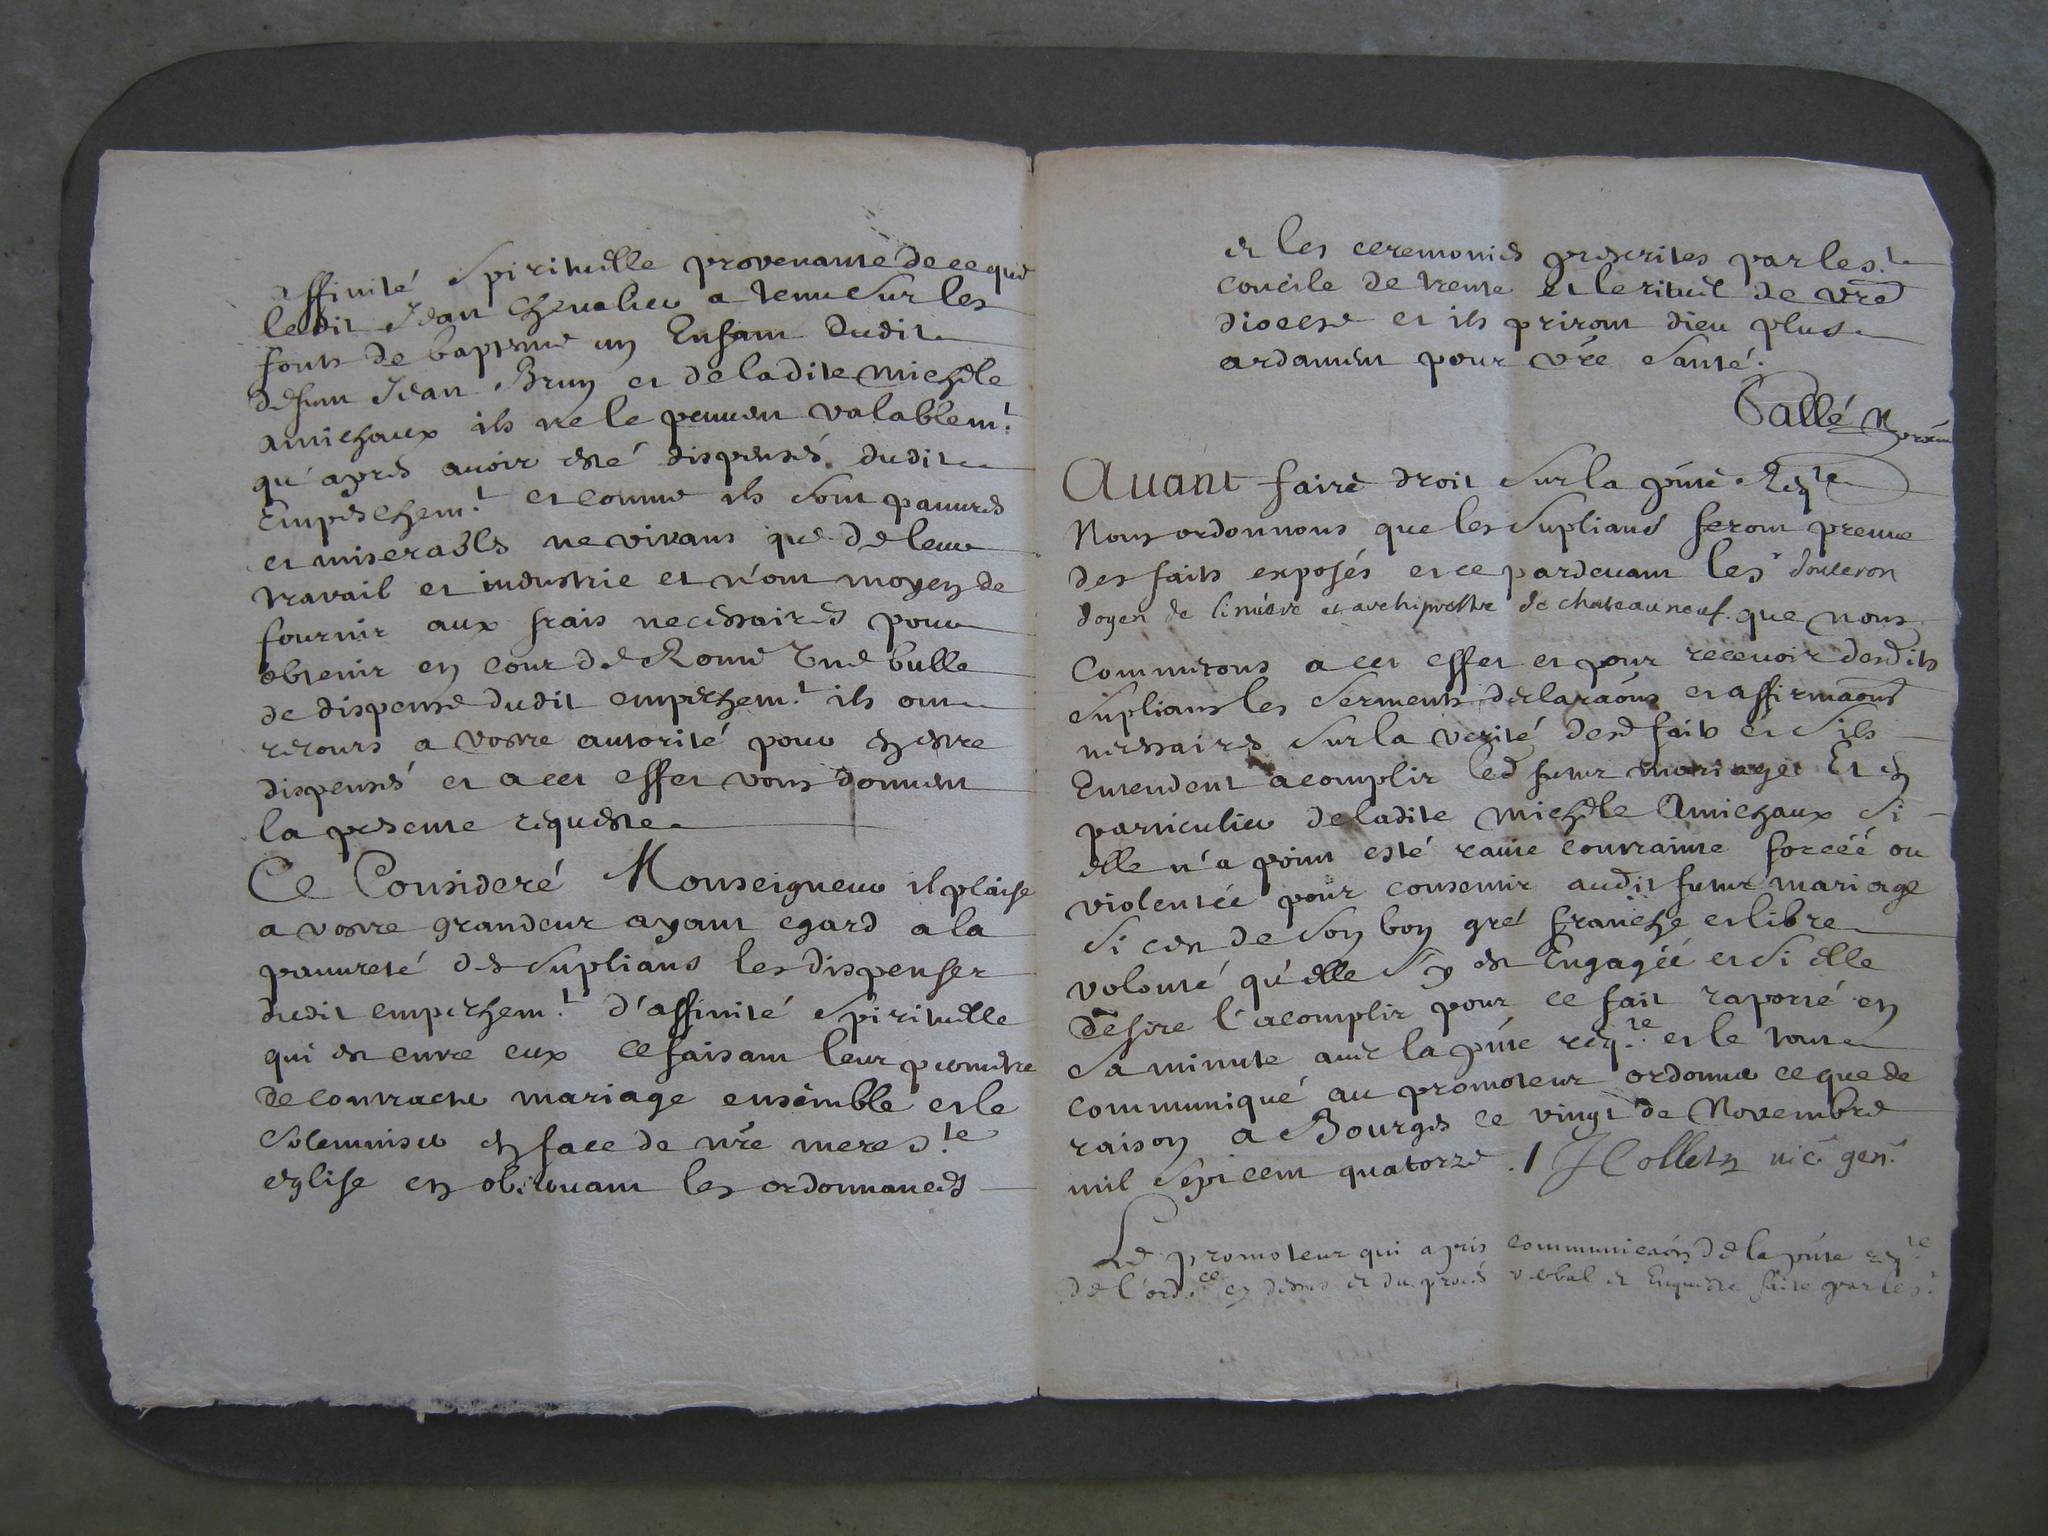 affinité spirituelle provenante de ce que
ledit Jean Chevalier a tenu sur les
fonts de baptesme un Enfant dudit
defunt Jean Brun et de ladite Michele
amichaux ils ne le peuvent valablem.t
qu'apres avoir esté dispensés dudit
Empeschem.t et comme ils sont pauvres
et miserables ne vivans que de leur
travail et industrie et n'ont moyen de
fournir aux frais necessaires pour
obtenir en cour de Rome Une bulle
de dispense dudit empeschem.t ils ont
recours a vostre autorité pour en estre
dispensés et a cet effet vous donnent
la presente requeste
Ce Consideré Monseigneur il plaise
a vostre grandeur ayant egard a la
pauvreté des suplians les dispenser
dudit empeschem.t d'affinité spirituelle
qui est entre eux ce faisant leur permettre
de contracter mariage ensemble et le
solemniser en face de n're mere s.te
eglise en observant les ordonnances
et les ceremonies prescrites par le s.t
concile de trente et le rituel de v're
diocese et ils priront dieu plus
ardament pour v're santé.
Tallé
Avant faire droit sur la p'nte Req.te
Nous ordonnons que les Suplians feront preuve
des faits exposés et ce pardevant le s.r douceron
doyen de linière et archiprestre de chateauneuf que nous
Commetons a cet effet et pour recevoir desdits
suplians les serments declaraõns et affirmaõns
necessaires sur la verité desd faits et s'ils
Entendent acomplir led futur mariage Et en
particulier de ladite Michele Amichaux si
elle n'a point esté ravie contrainte forcéé ou
violentéé pour consentir audit futur mariage
si c'est de son bon gré franche et libre
volonté qu'elle s'y est Engagéé et si elle
desire l'acomplir pour ce fait raporté en
sa minute avec la p'nte req.te et le tout
communiqué au promoteur ordonner ce que de
raison a Bourges ce vingt de Novembre
mil sept cent quatorze ./ J Collet vic. gen.
Le promoteur qui a pris communicaõn de la p'nte req.te
de l'ord.ce cy dessus et du procés verbal et Enqueste faite par le s.r